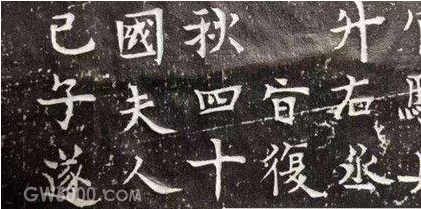 升右丞
旨復
秋四十
國夫人
己子遂
GW5000.COM